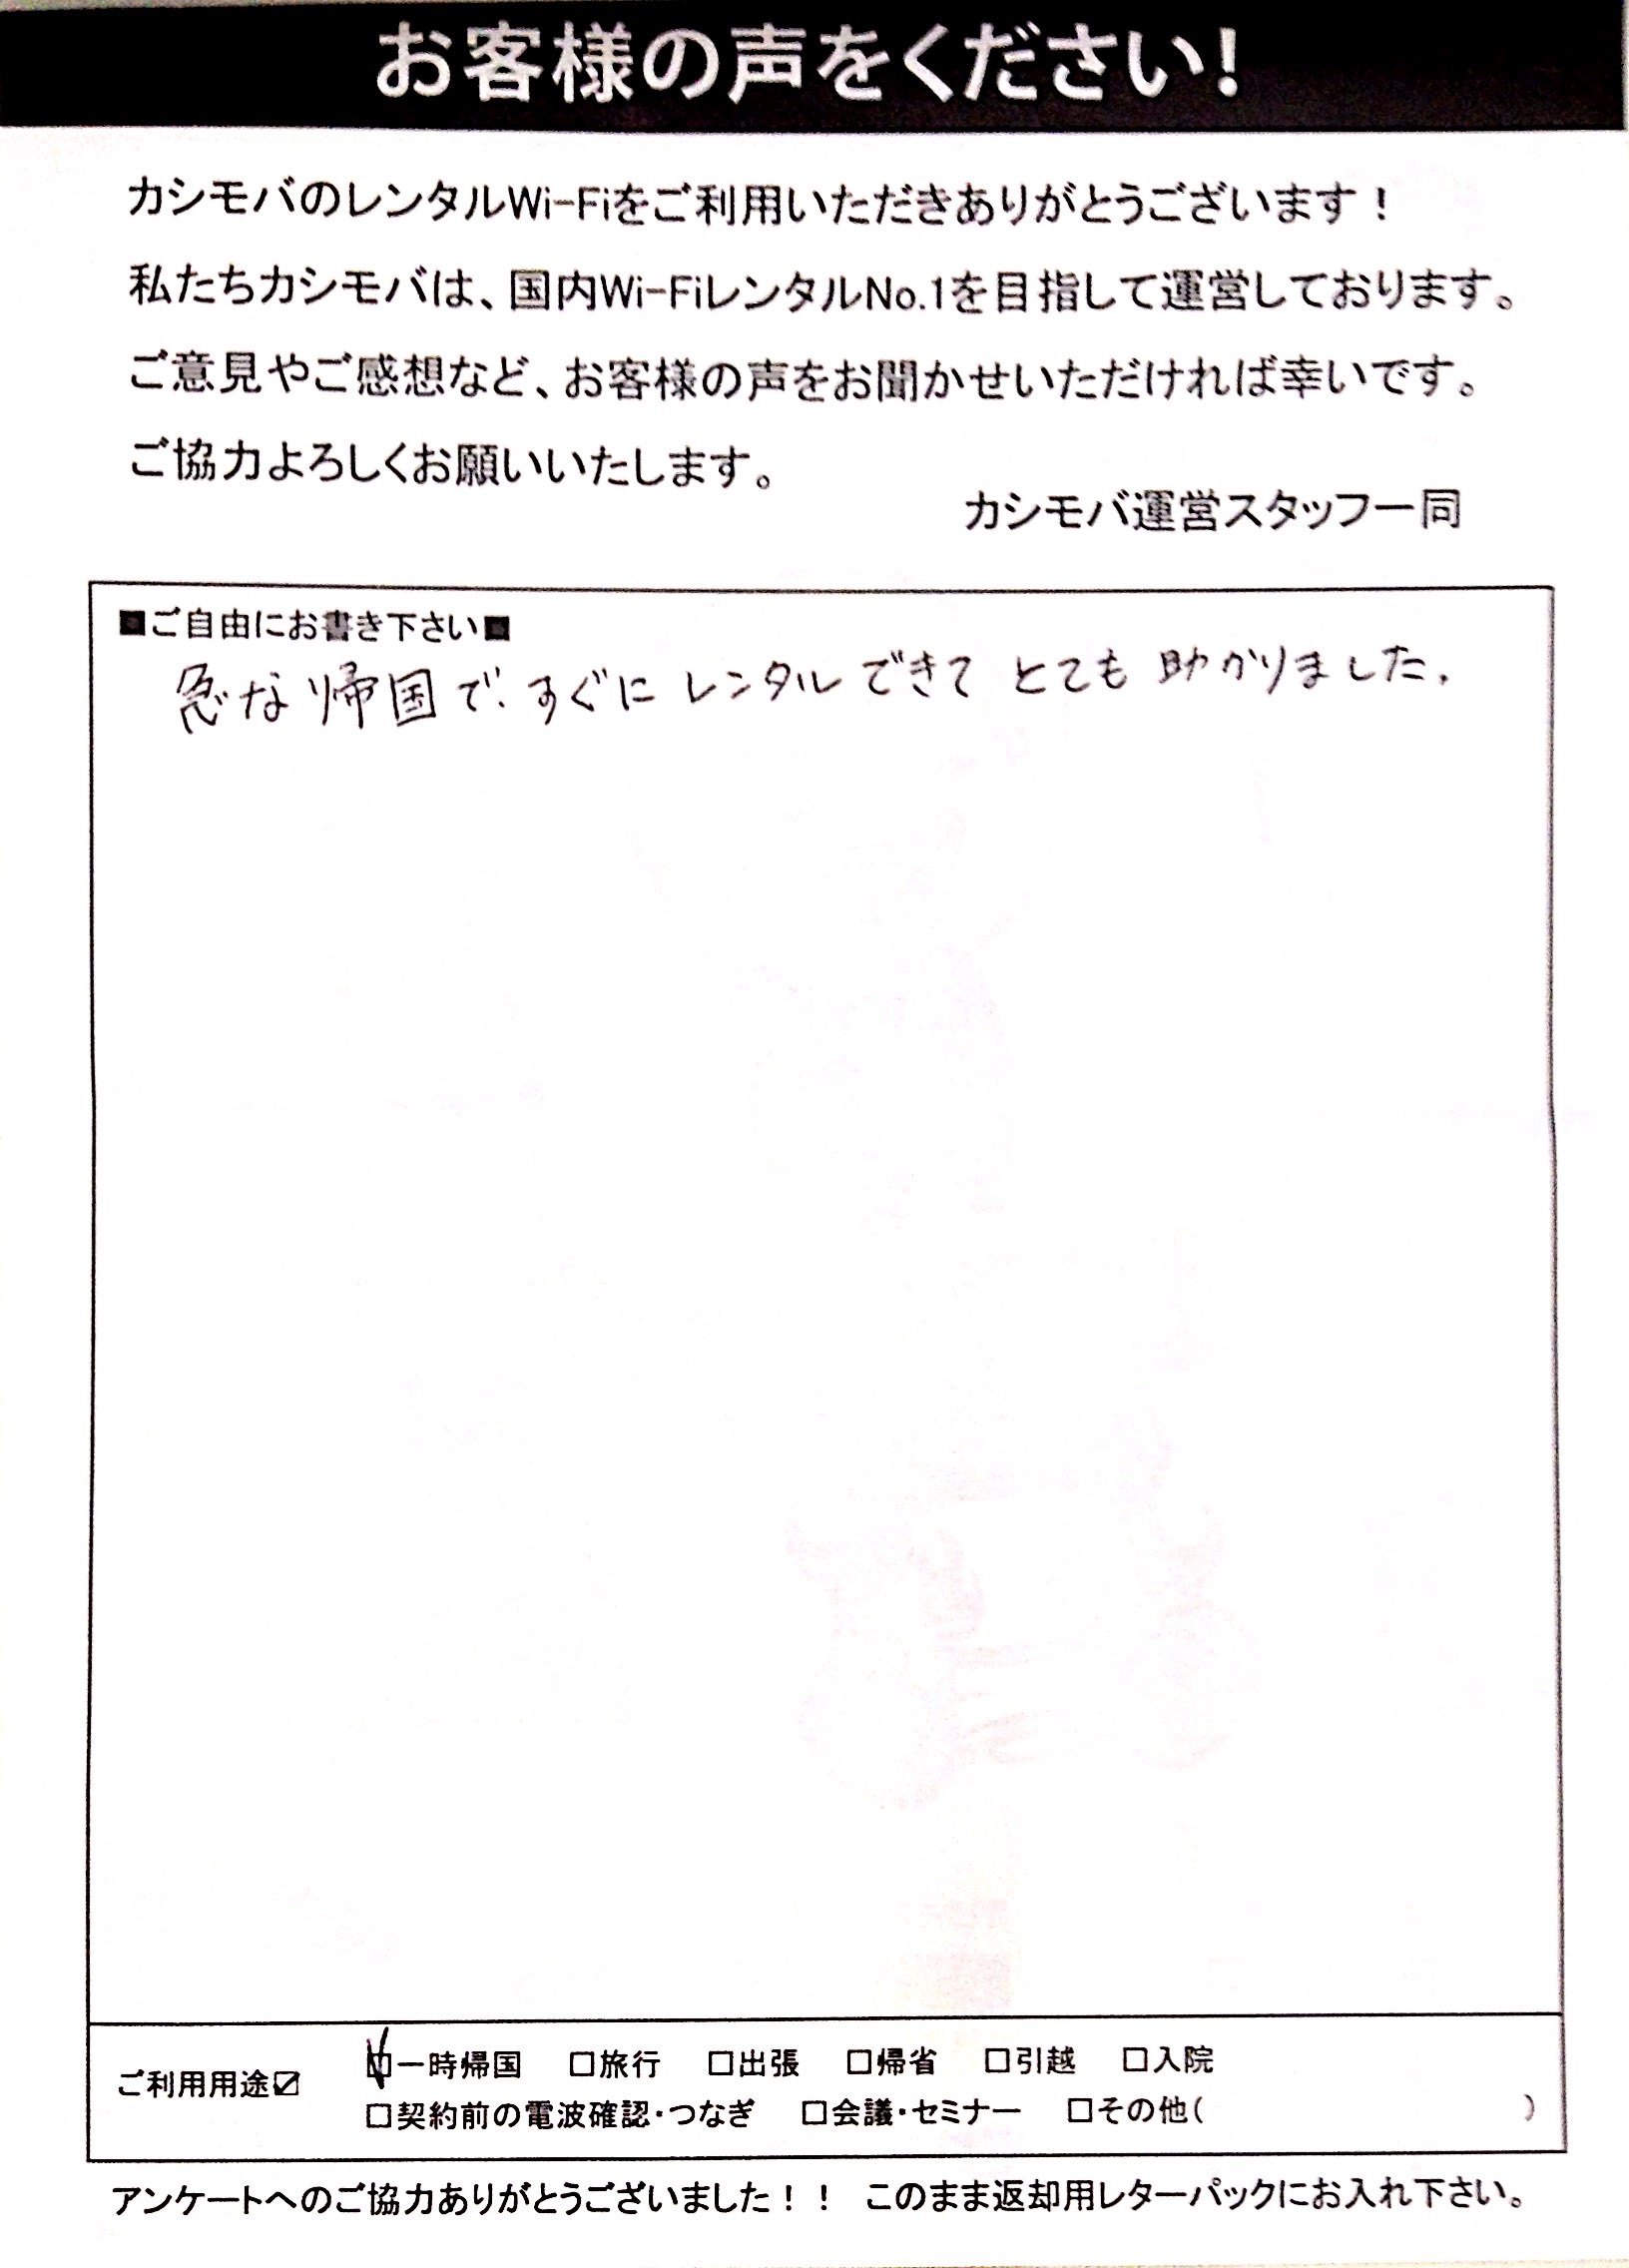 お客様の声をください!
カシモバのレンタルWi-Fiをご利用いただきありがとうございます！
私たちカシモバは、国内Wi-FiレンタルNo.1を目指して運営しております。
ご意見やご感想など、お客様の声をお聞かせいただければ幸いです。
ご協力よろしくお願いいたします。
カシモバ運営スタッフ一同
■ご自由にお書き下さい■
急な帰国で、すぐに レンタルできて とても 助かりました。
ご利用用途☑
☑一時帰国 □旅行 □出張 □帰省 □引越 □入院
□契約前の電波確認・つなぎ □会議・セミナー □その他( )
アンケートへのご協力ありがとうございました！！ このまま返却用レターパックにお入れ下さい。